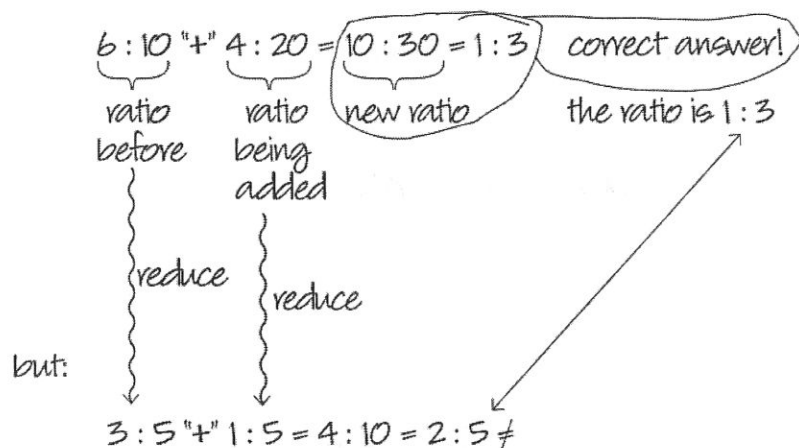 6 : 10 "+" 4 : 20 = 10 : 30 = 1 : 3 correct answer!
ratio before
ratio being added
new ratio
the ratio is 1 : 3
reduce
reduce
but:
3 : 5 "+" 1 : 5 = 4 : 10 = 2 : 5 ≠